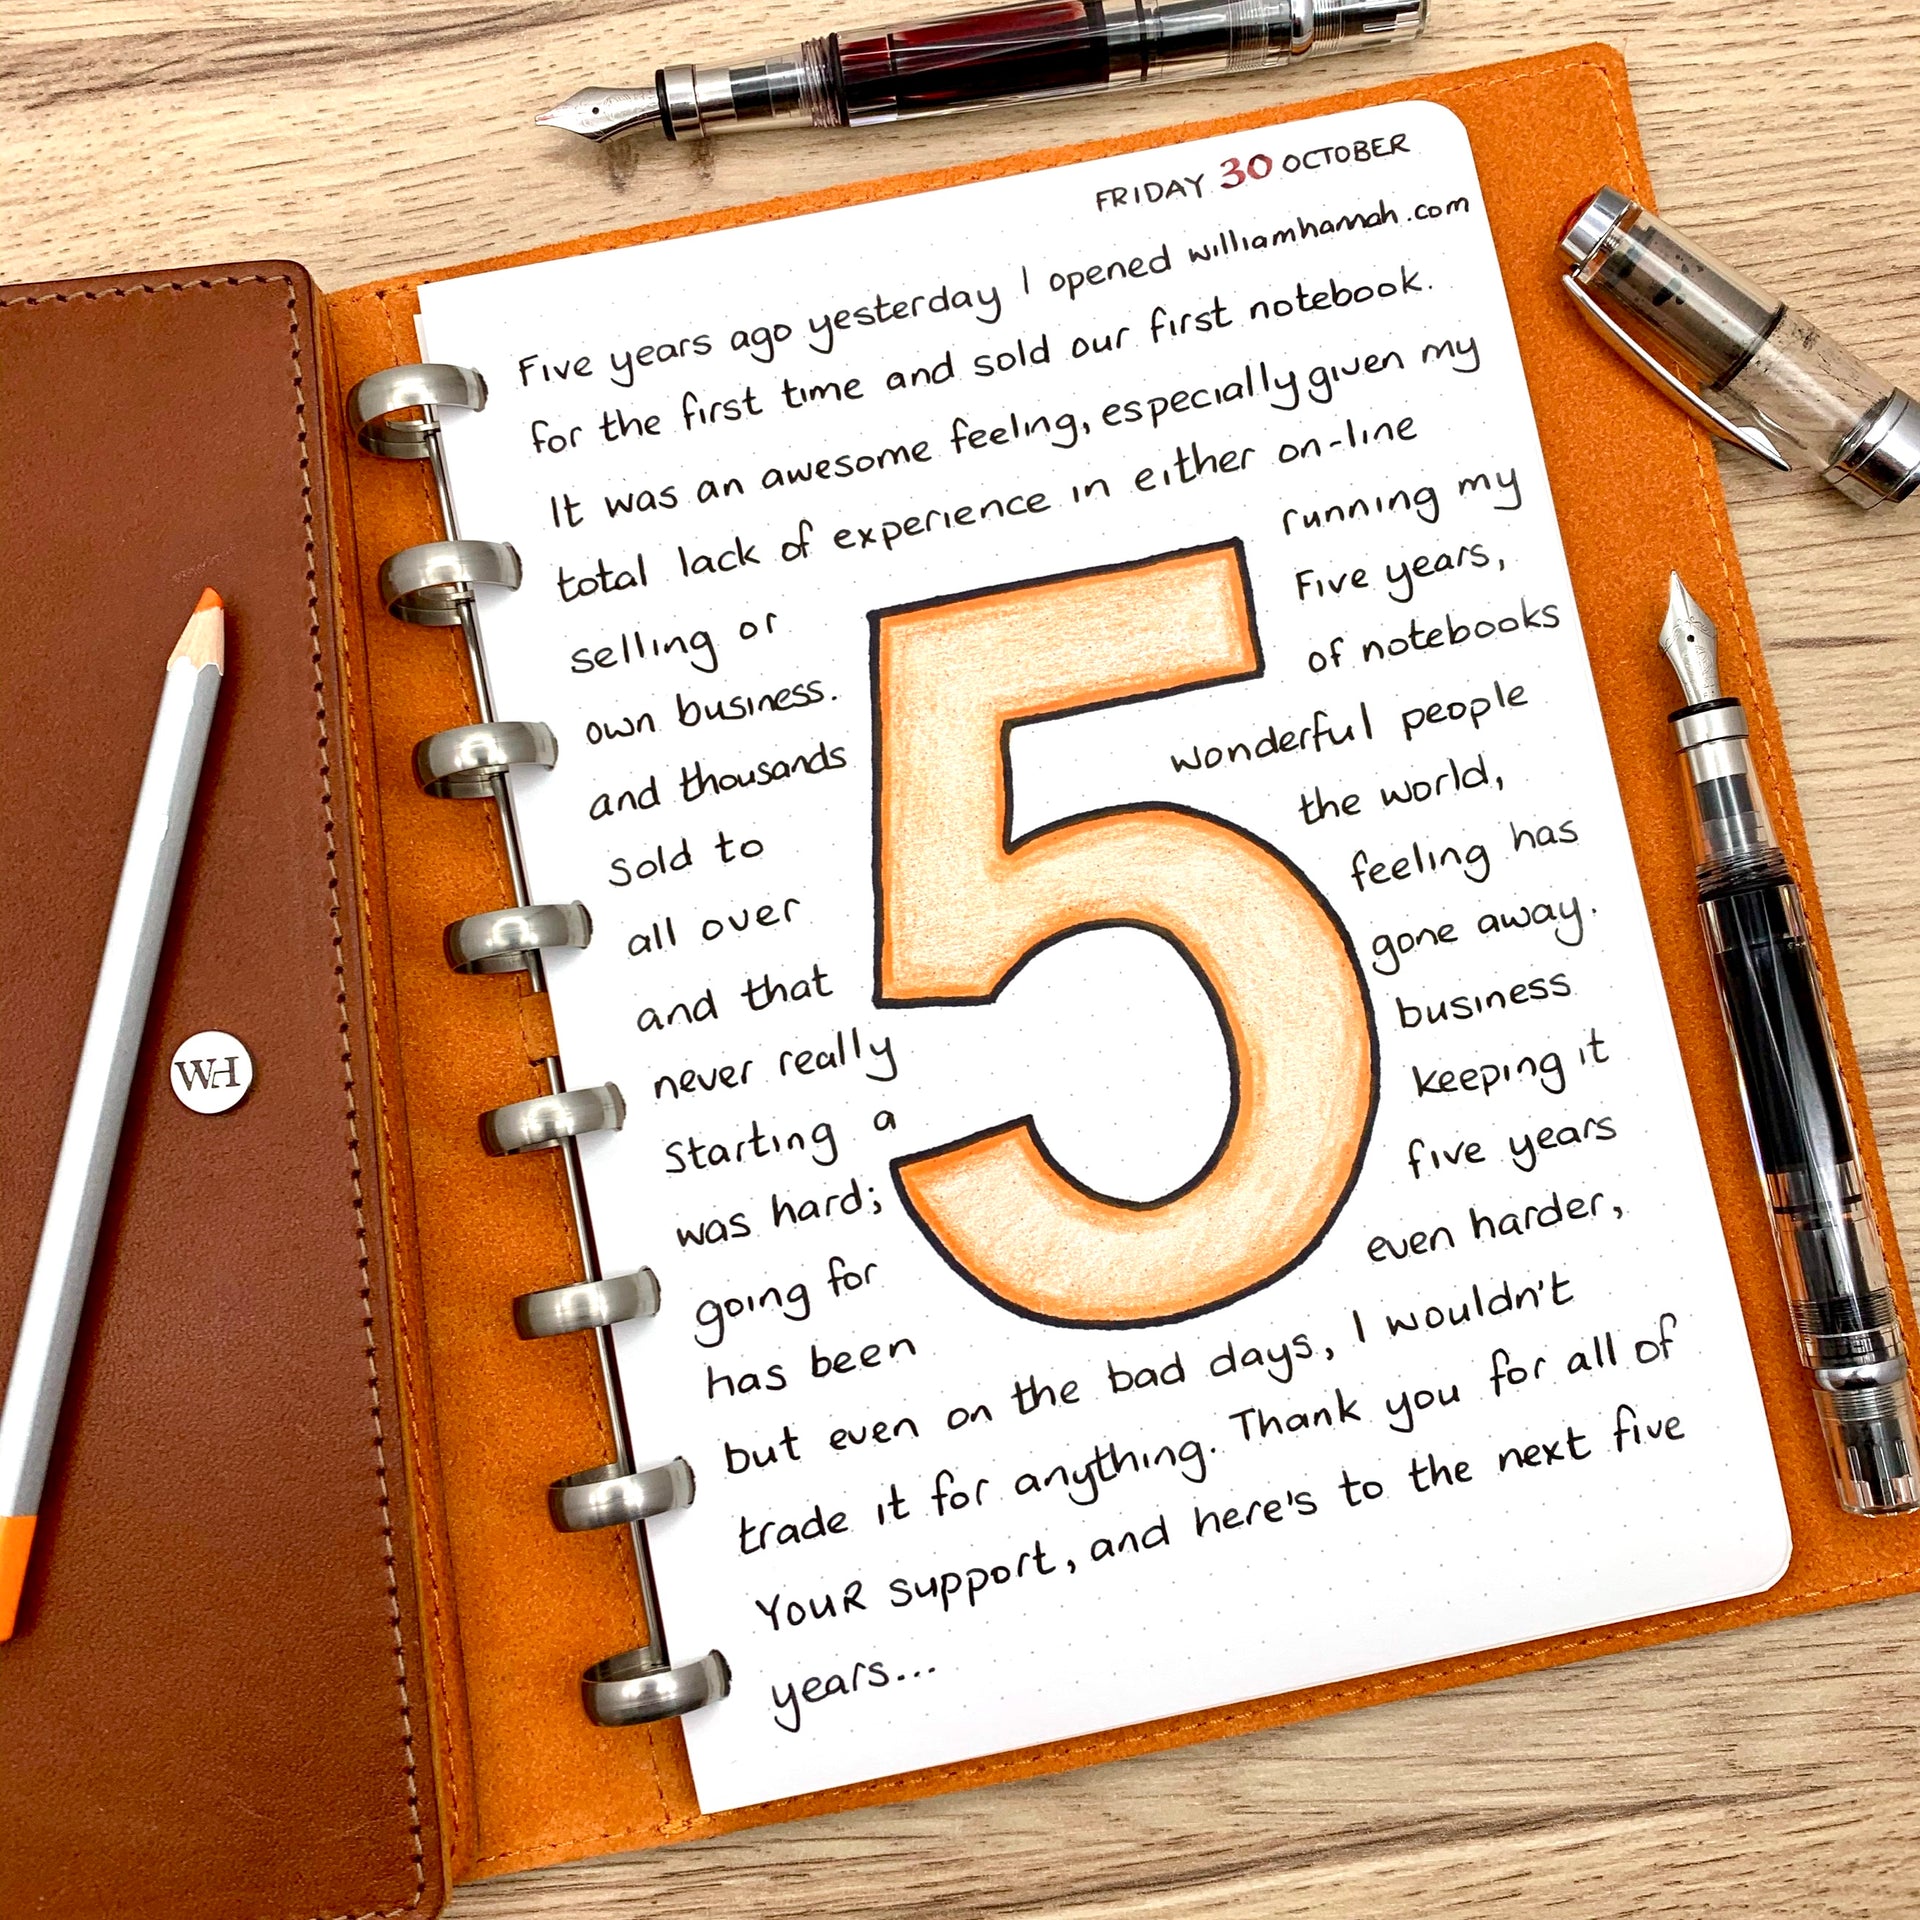 FRIDAY 30 OCTOBER
Five years ago yesterday I opened williamhannah.com
for the first time and sold our first notebook.
It was an awesome feeling, especially given my
total lack of experience in either on-line
selling or running my
own business. Five years,
and thousands of notebooks
sold to wonderful people
all over the world,
and that feeling has
never really gone away.
Starting a business
was hard; keeping it
going for five years
has been even harder,
but even on the bad days, I wouldn't
trade it for anything. Thank you for all of
YOUR support, and here's to the next five
years...
5
WH